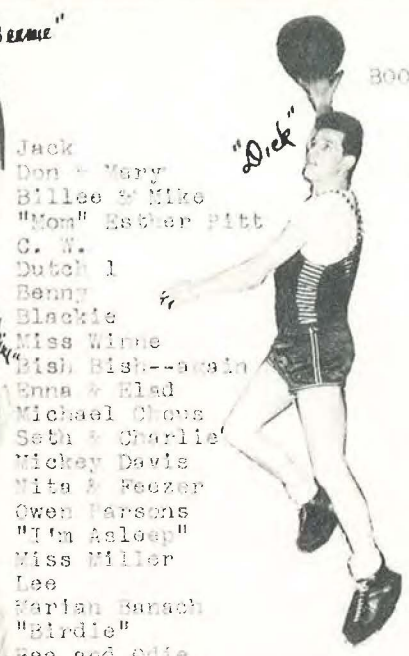 "Dick"
BOO
Jack
Don & Mary
Billee & Mike
"Mom" Esther Pitt
C. W.
Dutch 1
Benny
Blackie
Miss Winne
Bish Bish--again
Enna & Elad
Michael Chous
Seth & Charlie
Mickey Davis
Nita & Feezer
Owen Parsons
"I'm Asleep"
Miss Miller
Lee
Marian Banach
"Birdie"
and Odie